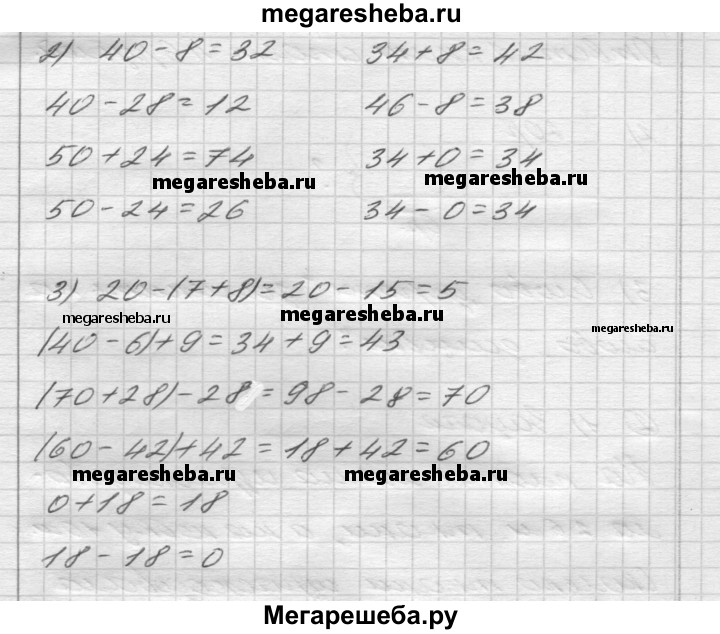 megaresheba.ru
2) 40 - 8 = 32 34 + 8 = 42
40 - 28 = 12 46 - 8 = 38
50 + 24 = 74 34 + 0 = 34
megaresheba.ru megaresheba.ru
50 - 24 = 26 34 - 0 = 34
3) 20 - (7 + 8) = 20 - 15 = 5
megaresheba.ru megaresheba.ru megaresheba.ru
(40 - 6) + 9 = 34 + 9 = 43
(70 + 28) - 28 = 98 - 28 = 70
(60 - 42) + 42 = 18 + 42 = 60
megaresheba.ru megaresheba.ru
0 + 18 = 18
18 - 18 = 0
Мегарешеба.ру